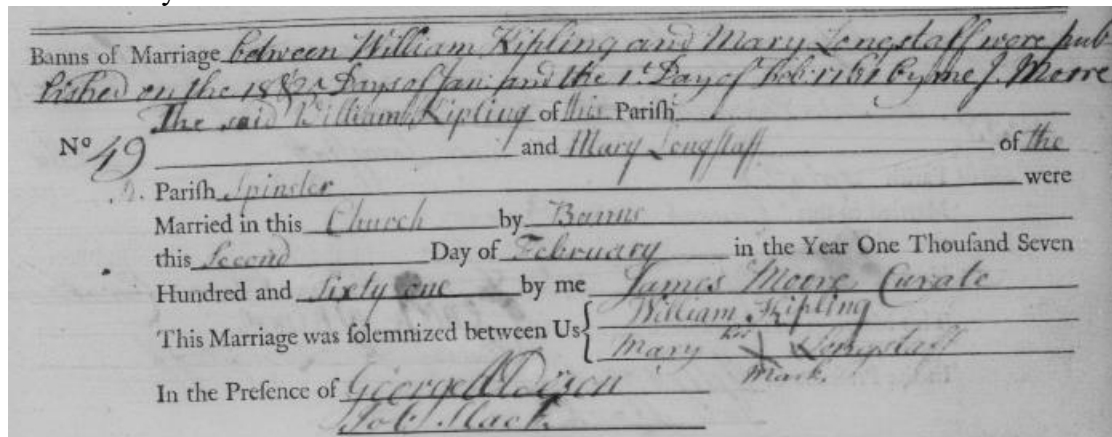 Banns of Marriage between William Kipling and Mary Longstaff were pub-
lished on the 18 & 25 Days of Jan: and the 1st Day of Feb: 1761 by me J. Moore
The said William Kipling of this Parish
No 49 and Mary Longstaff of the
Parish Spinster were
Married in this Church by Banns
this Second Day of February in the Year One Thousand Seven
Hundred and Sixty one by me James Moore Curate
This Marriage was solemnized between Us William Kipling
Mary her X Longstaff
Mark.
In the Presence of George
Slack